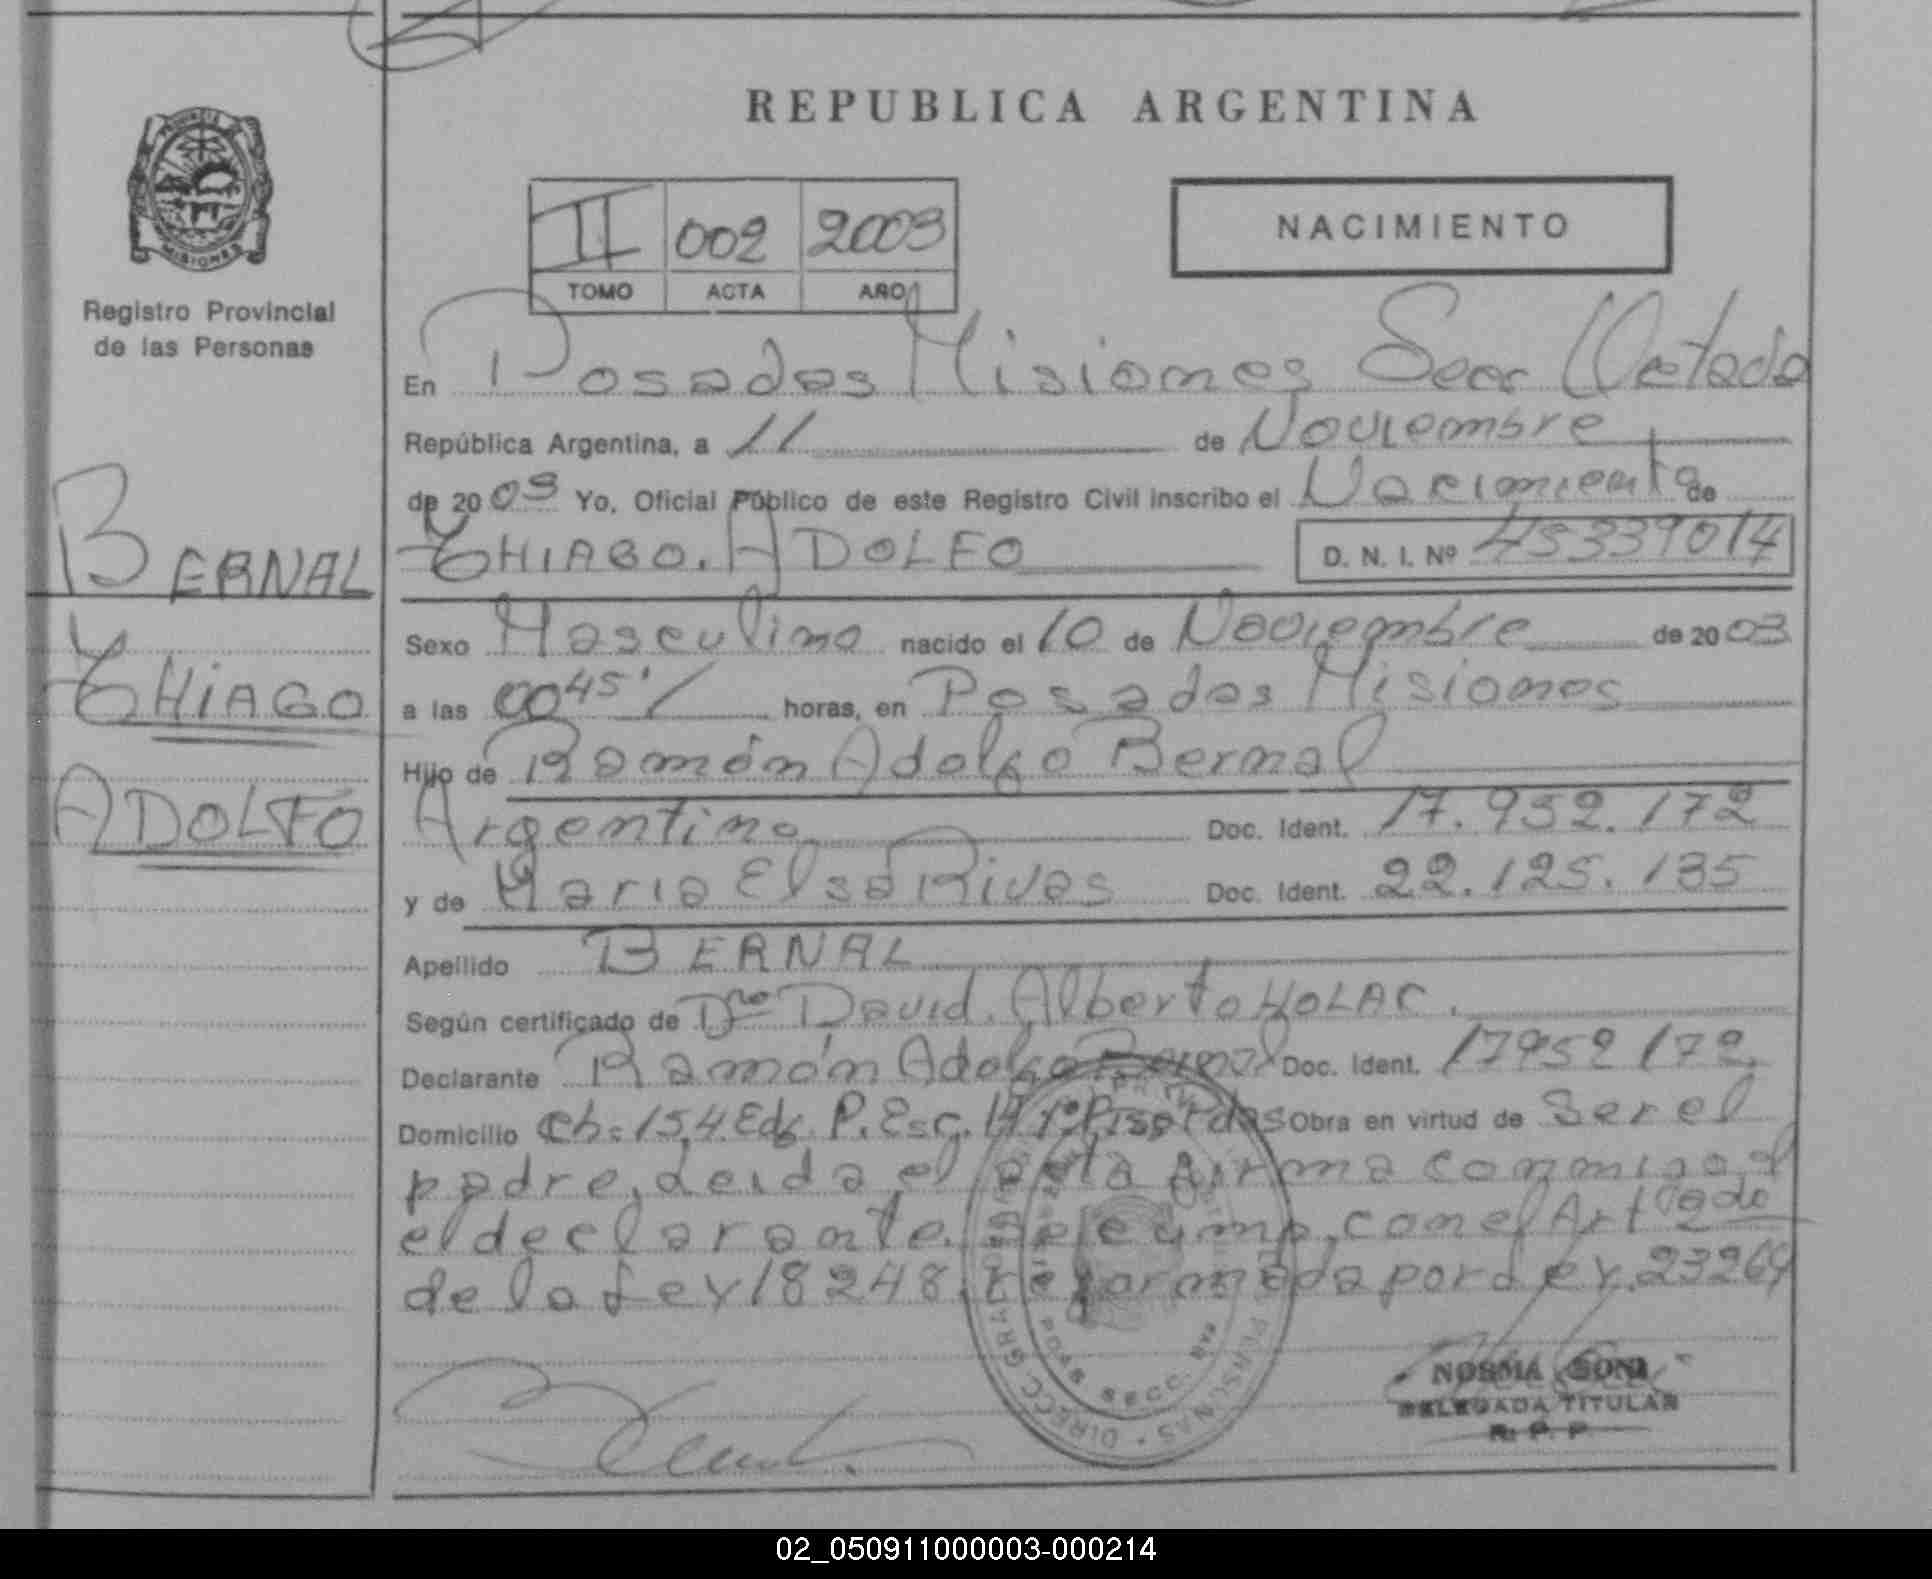 REPUBLICA ARGENTINA
PROVINCIA DE
MISIONES
Registro Provincial
de las Personas
II 002 2003
TOMO ACTA AÑO
NACIMIENTO
En Posadas Misiones Secc
República Argentina, a 11 de Noviembre
de 2003 Yo, Oficial Público de este Registro Civil inscribo el Nacimiento de
BERNAL
THIAGO
ADOLFO
THIAGO. ADOLFO D. N. I. Nº 45339014
Sexo Masculino nacido el 10 de Noviembre de 2003
a las 00 45' horas, en Posadas Misiones
Hijo de Ramón Adolfo Bernal
Argentino Doc. Ident. 17.952.172
y de Maria Elsa Rivas Doc. Ident. 22.125.135
Apellido BERNAL
Según certificado de David Alberto HOLAC.
Declarante Ramón Adolfo Bernal Doc. Ident. 17952172
Domicilio Ch. 154 Edf. P. Esc. 1º Piso Pdas Obra en virtud de Ser el
padre, Leida el acta firma conmigo
el declarante. Se cump. con el Art 2do
de la Ley 18248, reformada por Ley. 23264
DIRECC. GRAL. PERSONAS
PDAS SECC.
NORMA GONI
DELEGADA TITULAR
R. P. P.
02_050911000003-000214